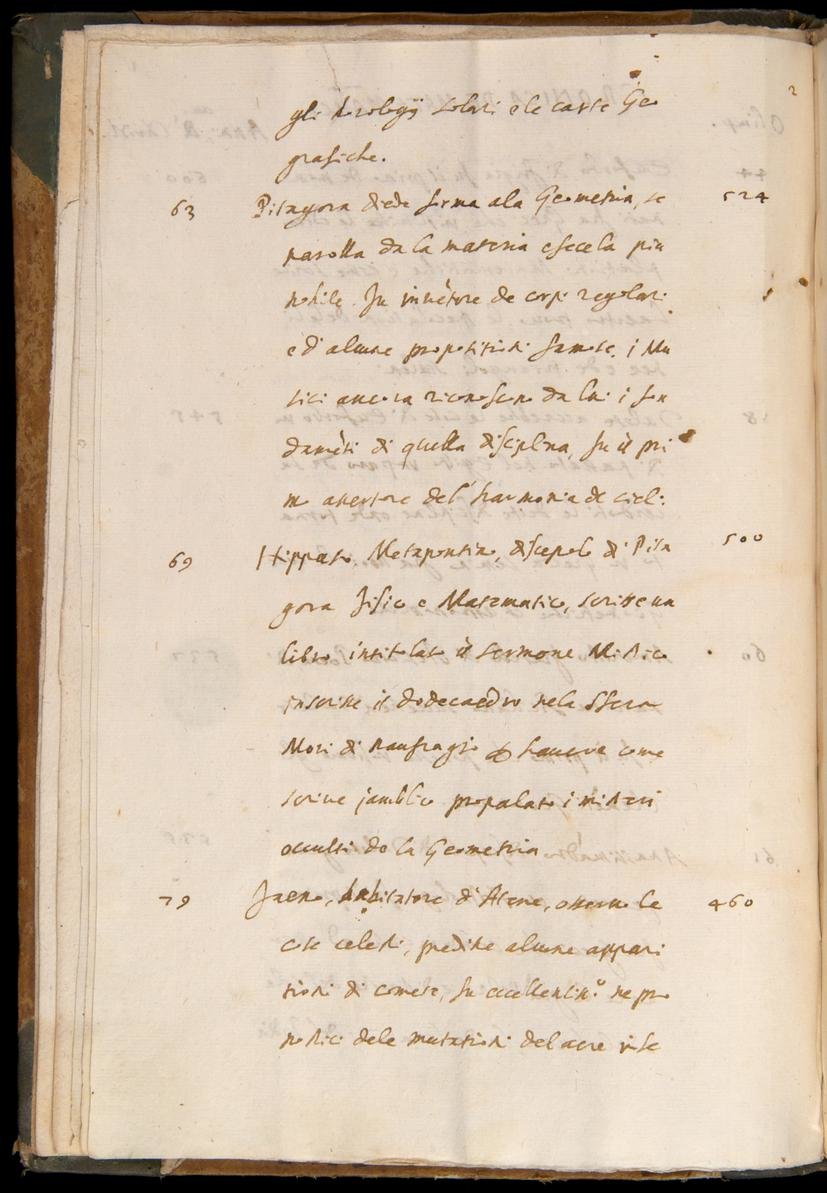 gli horologij solari e le carte Geo
grafiche.
63 Pitagora diede forma ala Geometria, se 524
parolla da la materia e fecela piu
nobile. fu invẽtore de corpi regolari
e d'alcune propositioni famose, i Mu
sici ancora riconoscono da lui i fon
damẽti di quella disciplina, fu il pri
mo assertore del'harmonia de cieli.
69 Hippaso Metapontino, discepolo di Pita 500
gora fisico e Matematico, scrisse un
libro intitolato il sermone Mistico
inscrisse il dodecaedro nela Sfera
Morì di naufragio haveva come
scrive jamblico propalato i misteri
occulti de la Geometria
79 Faeno, habitatore d'Atene, osservò le 460
cose celesti, predisse alcune appari
tioni di comete, fu eccellentiss.o ne pro
nostici dele mutationi del aere